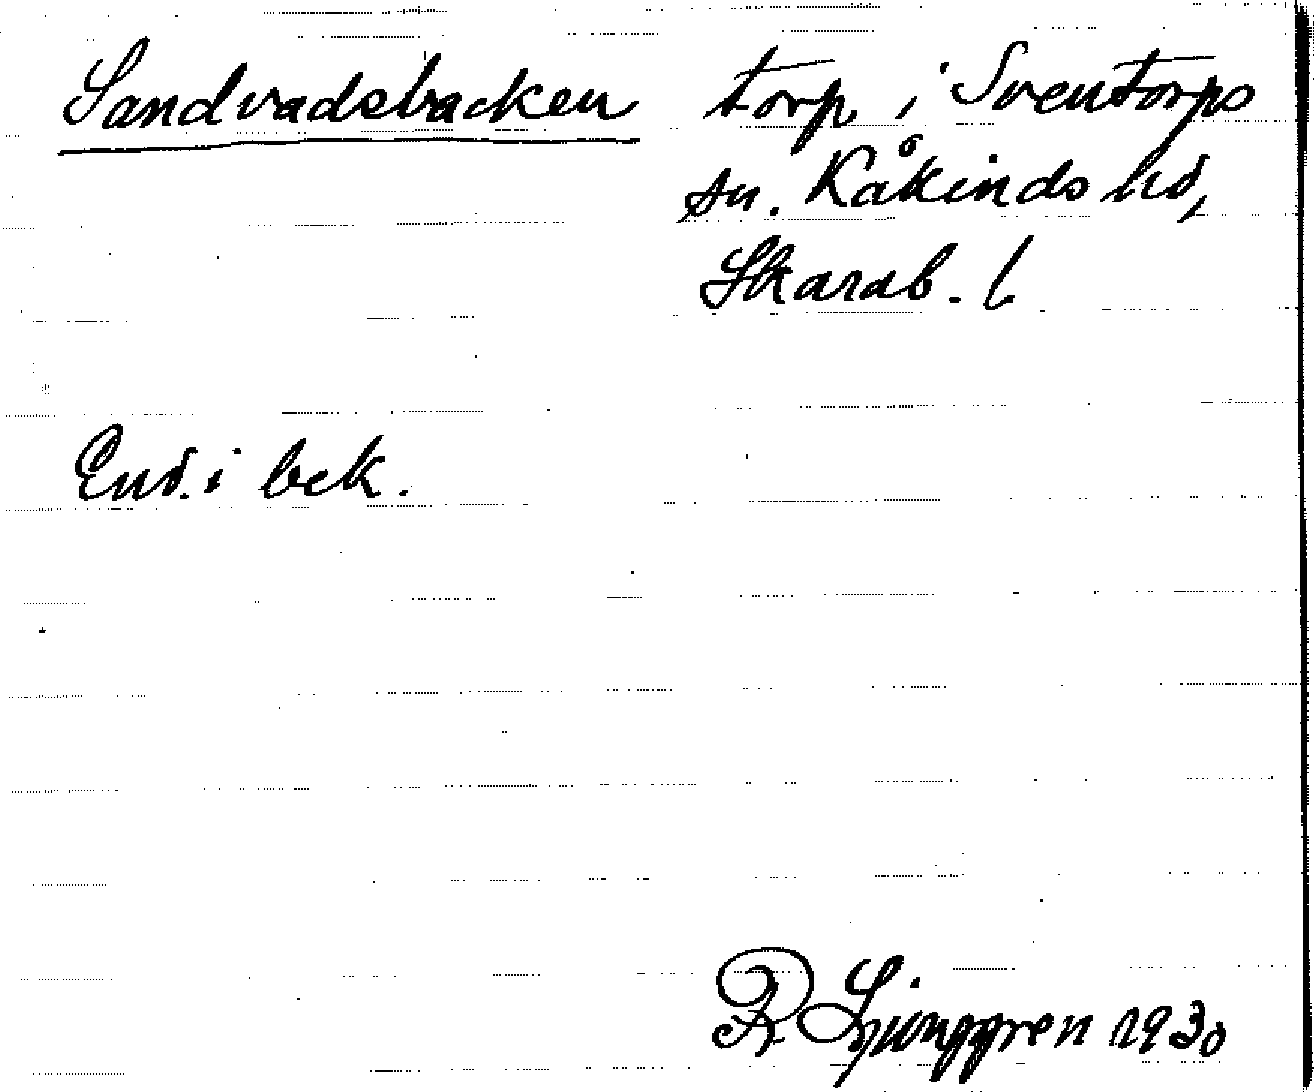 Sandvadsbacken torp i Sventorps
sn. Kåkinds hd,
Skarab. l
End. i bek.
R Ljunggren 1930